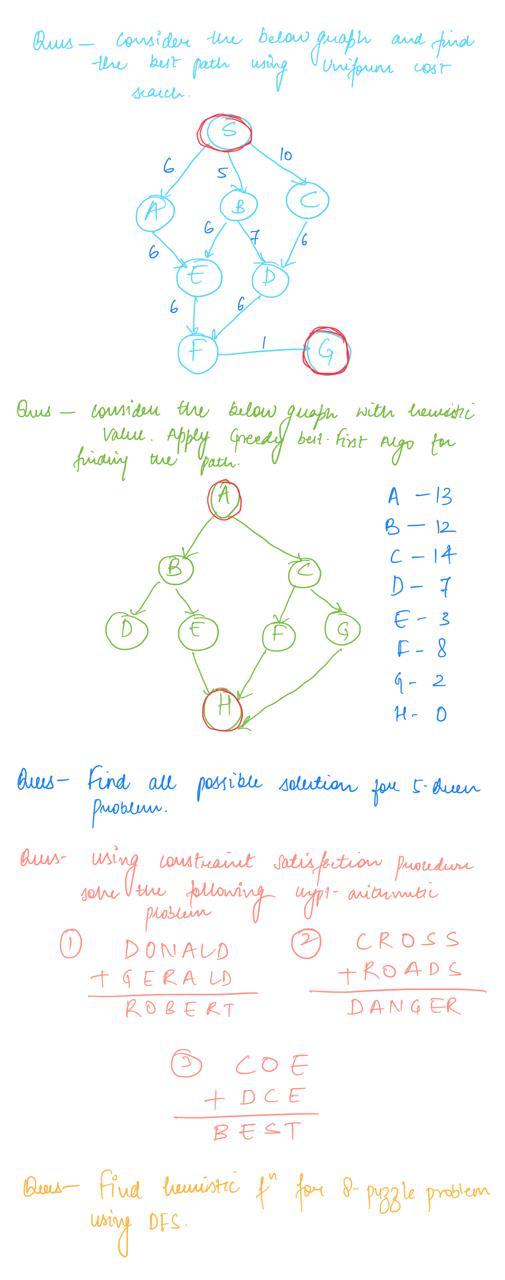 Ques - consider the below graph and find
the best path using Uniform cost
search.
S
6
5
10
A
B
C
6
6
7
6
E
D
6
6
F
1
G
Ques - consider the below graph with heuristic
Value. Apply Greedy best-First Algo for
finding the path.
A
B
C
D
E
F
G
H
A - 13
B - 12
C - 14
D - 7
E - 3
F - 8
G - 2
H - 0
Ques - Find all possible solution for 5-Queen
Problem.
Ques - using constraint satisfaction procedure
solve the following crypt-arithmetic
problem
① DONALD
+ GERALD
ROBERT
② CROSS
+ROADS
DANGER
③ COE
+ DCE
BEST
Ques - Find heuristic fⁿ for 8-puzzle problem
using DFS.